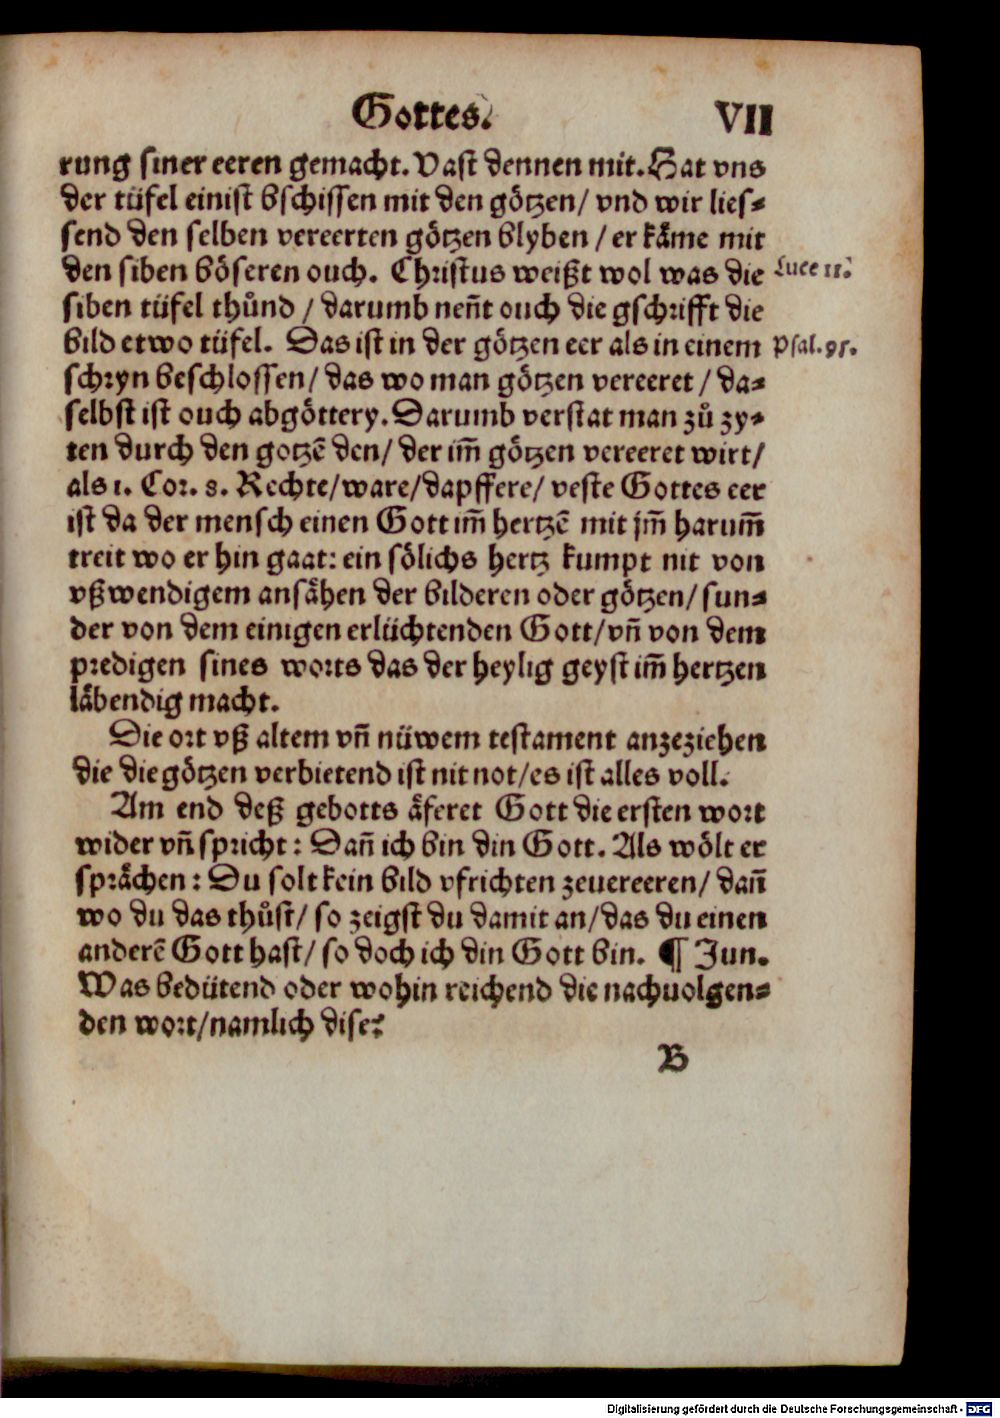 Gottes. VII
rung siner eeren gemacht. Vast dennen mit. Hat vns
der tüfel einist bschissen mit den götzen/ vnd wir lies⸗
send den selben vereerten götzen blyben / er käme mit
den siben böseren ouch. Christus weißt wol was die Luce 11.
siben tüfel thůnd / darumb nen̄t ouch die gschrifft die
bild etwo tüfel. Das ist in der götzen eer als in einem Psal. 95.
schryn beschlossen/ das wo man götzen vereeret / da⸗
selbst ist ouch abgöttery. Darumb verstat man zů zy⸗
ten durch den gotzē den/ der im̄ götzen vereeret wirt/
als 1. Cor. 8. Rechte/ ware/ dapffere/ veste Gottes eer
ist da der mensch einen Gott im̄ hertzē mit jm̄ harum̄
treit wo er hin gaat: ein sölichs hertz kumpt nit von
vßwendigem ansähen der bilderen oder götzen/ sun⸗
der von dem einigen erlüchtenden Gott/ vn̄ von dem
predigen sines worts das der heylig geyst im̄ hertzen
läbendig macht.
Die ort vß altem vn̄ nüwem testament anzeziehen
die die götzen verbietend ist nit not/ es ist alles voll.
Am end deß gebotts äferet Gott die ersten wort
wider vn̄ spricht: Dan̄ ich bin din Gott. Als wölt er
sprächen: Du solt kein bild vfrichten zeuereeren/ dan̄
wo du das thůst/ so zeigst du damit an/ das du einen
anderē Gott hast/ so doch ich din Gott bin. ¶ Jun.
Was bedütend oder wohin reichend die nachuolgen⸗
den wort/ namlich dise?
B
Digitalisierung gefördert durch die Deutsche Forschungsgemeinschaft - DFG